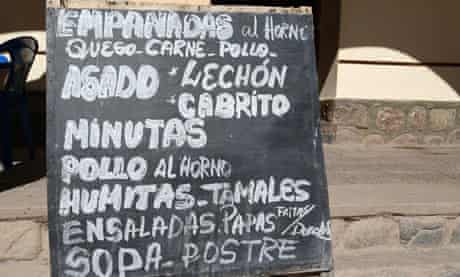 EMPANADAS al HORNO
QUESO - CARNE - POLLO -
ASADO • LECHÓN
• CABRITO
MINUTAS
POLLO AL HORNO
HUMITAS - TAMALES
ENSALADAS. PAPAS FRITAS/
SOPA - POSTRE